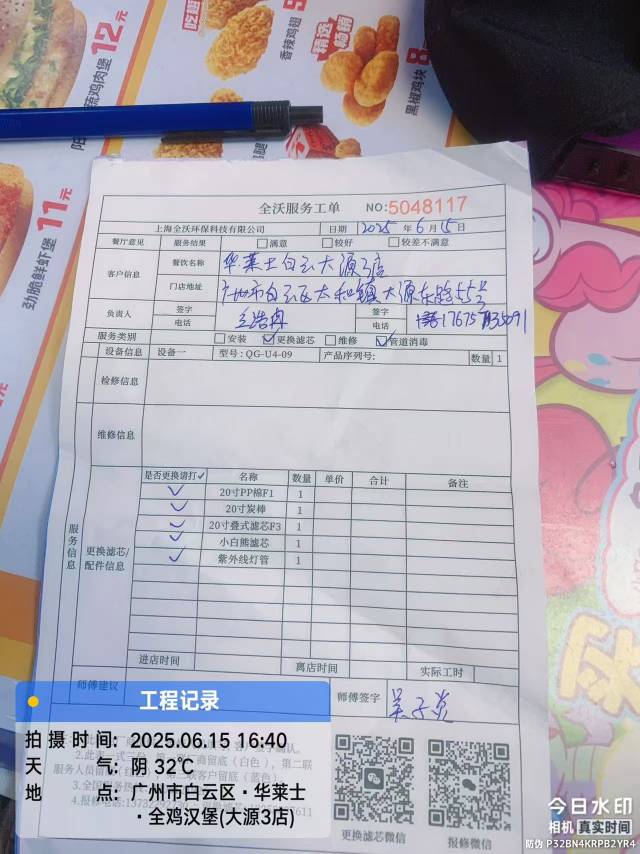 12元
阳
疏鸡肉堡
吃翅
香辣鸡翅
精选
畅销
黑椒鸡块
11元
劲脆鲜虾堡
全沃服务工单 NO:5048117
上海全沃环保科技有限公司 日期 2025年6月15日
餐厅意见 服务结果 满意 较好 较差不满意
客户信息 餐饮名称 华莱士白云大源3店
门店地址 广州市白云区太和镇大源东路55号
负责人 签字 签字
电话 电话 17675
服务类别 安装 更换滤芯 维修 管道消毒
设备信息 设备一 型号:QG-U4-09 产品序列号: 数量 1
检修信息
维修信息
服务信息
更换滤芯/配件信息
是否更换请打✓ 名称 数量 单价 合计 备注
✓ 20寸PP棉F1 1
✓ 20寸炭棒 1
✓ 20寸叠式滤芯F3 1
✓ 小白熊滤芯 1
✓ 紫外线灯管 1
进店时间 离店时间 实际工时
师傅建议 师傅签字 吴子炎
更换滤芯微信 报修微信
工程记录
拍摄时间: 2025.06.15 16:40
天气: 阴 32℃
地点: 广州市白云区·华莱士
·全鸡汉堡(大源3店)
今日水印
相机 真实时间
防伪 P32BN4KRPB2YR4